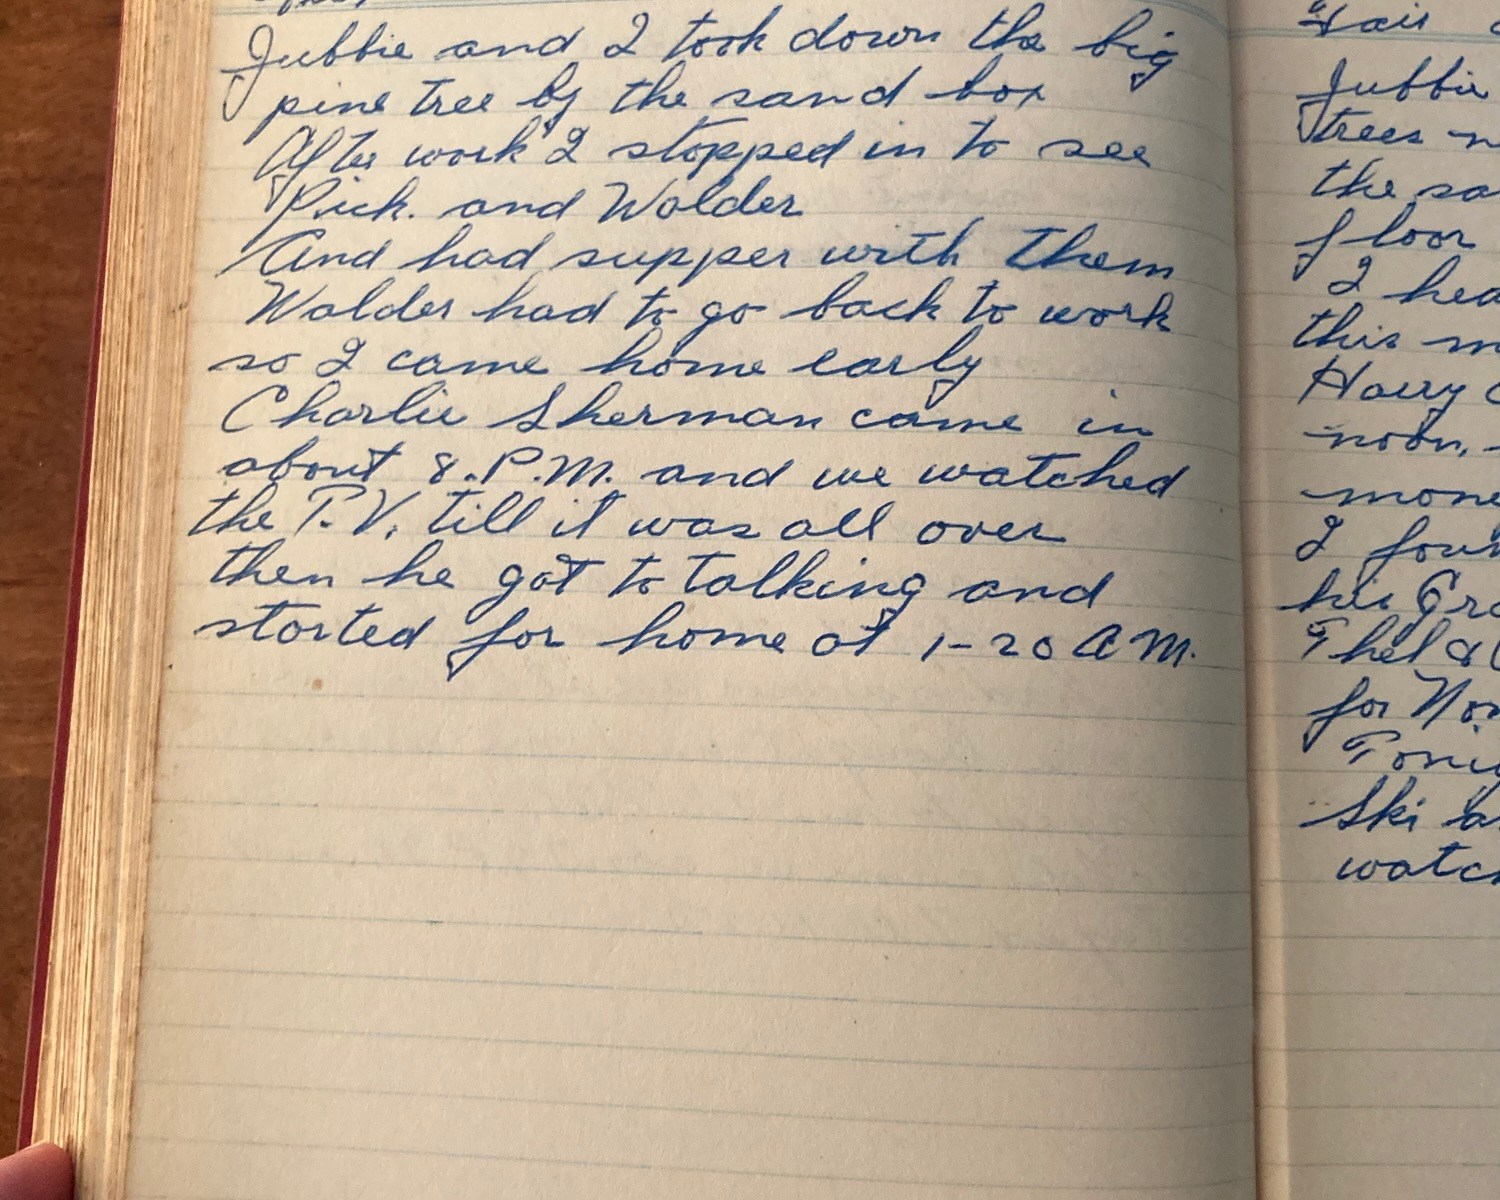 Jubbie and I took down the big
pine tree by the sand box
After work I stopped in to see
Pick. and Walder
And had supper with them
Walder had to go back to work
so I came home early
Charlie Sherman came in
about 8.P.M. and we watched
the T.V. till it was all over
then he got to talking and
started for home at 1-20 A M.
Fair
Jubbie
trees
the sa
floor
I hea
this m
Harry
noon,
mone
I foun
his Gra
Thel &
for Nor
Tonig
Ski a
watch